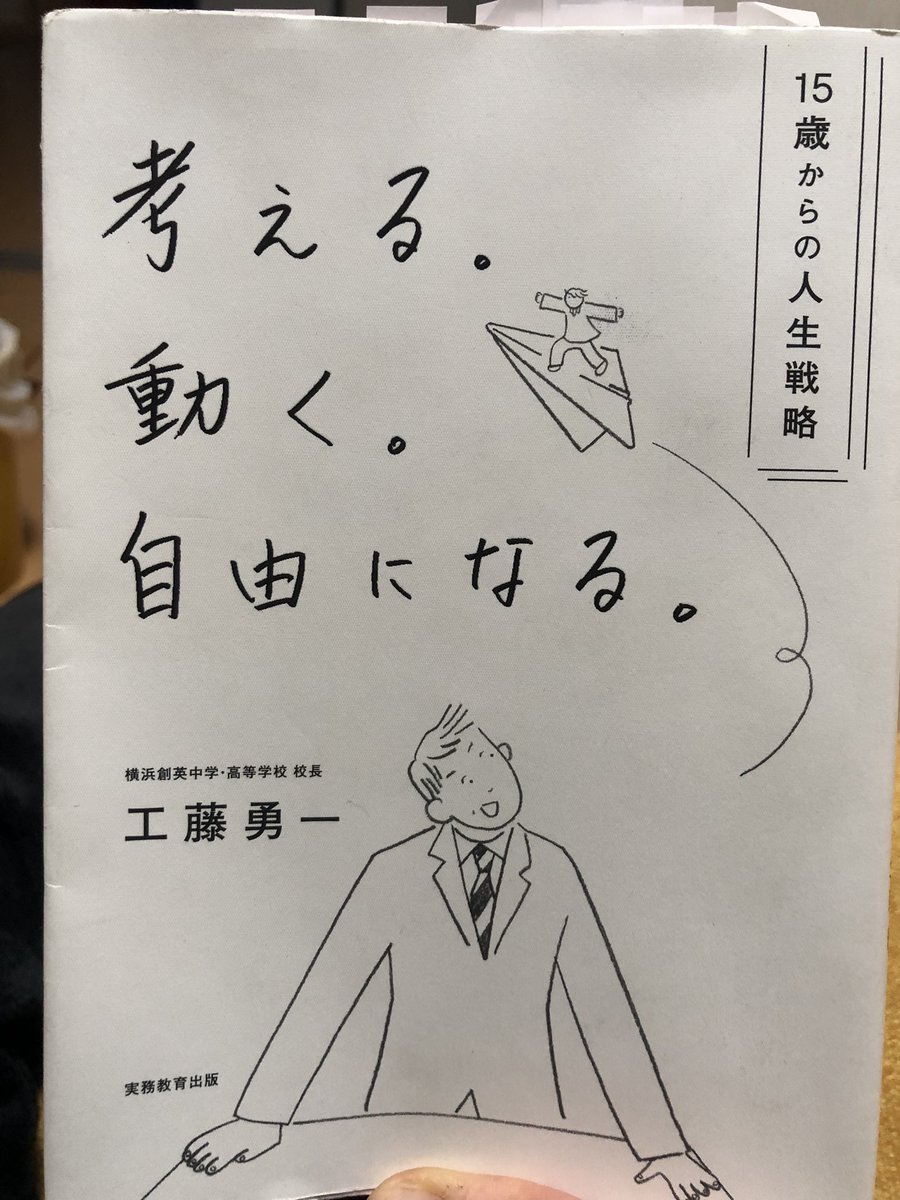 15歳からの人生戦略
考える。
動く。
自由になる。
横浜創英中学・高等学校 校長
工藤勇一
実務教育出版